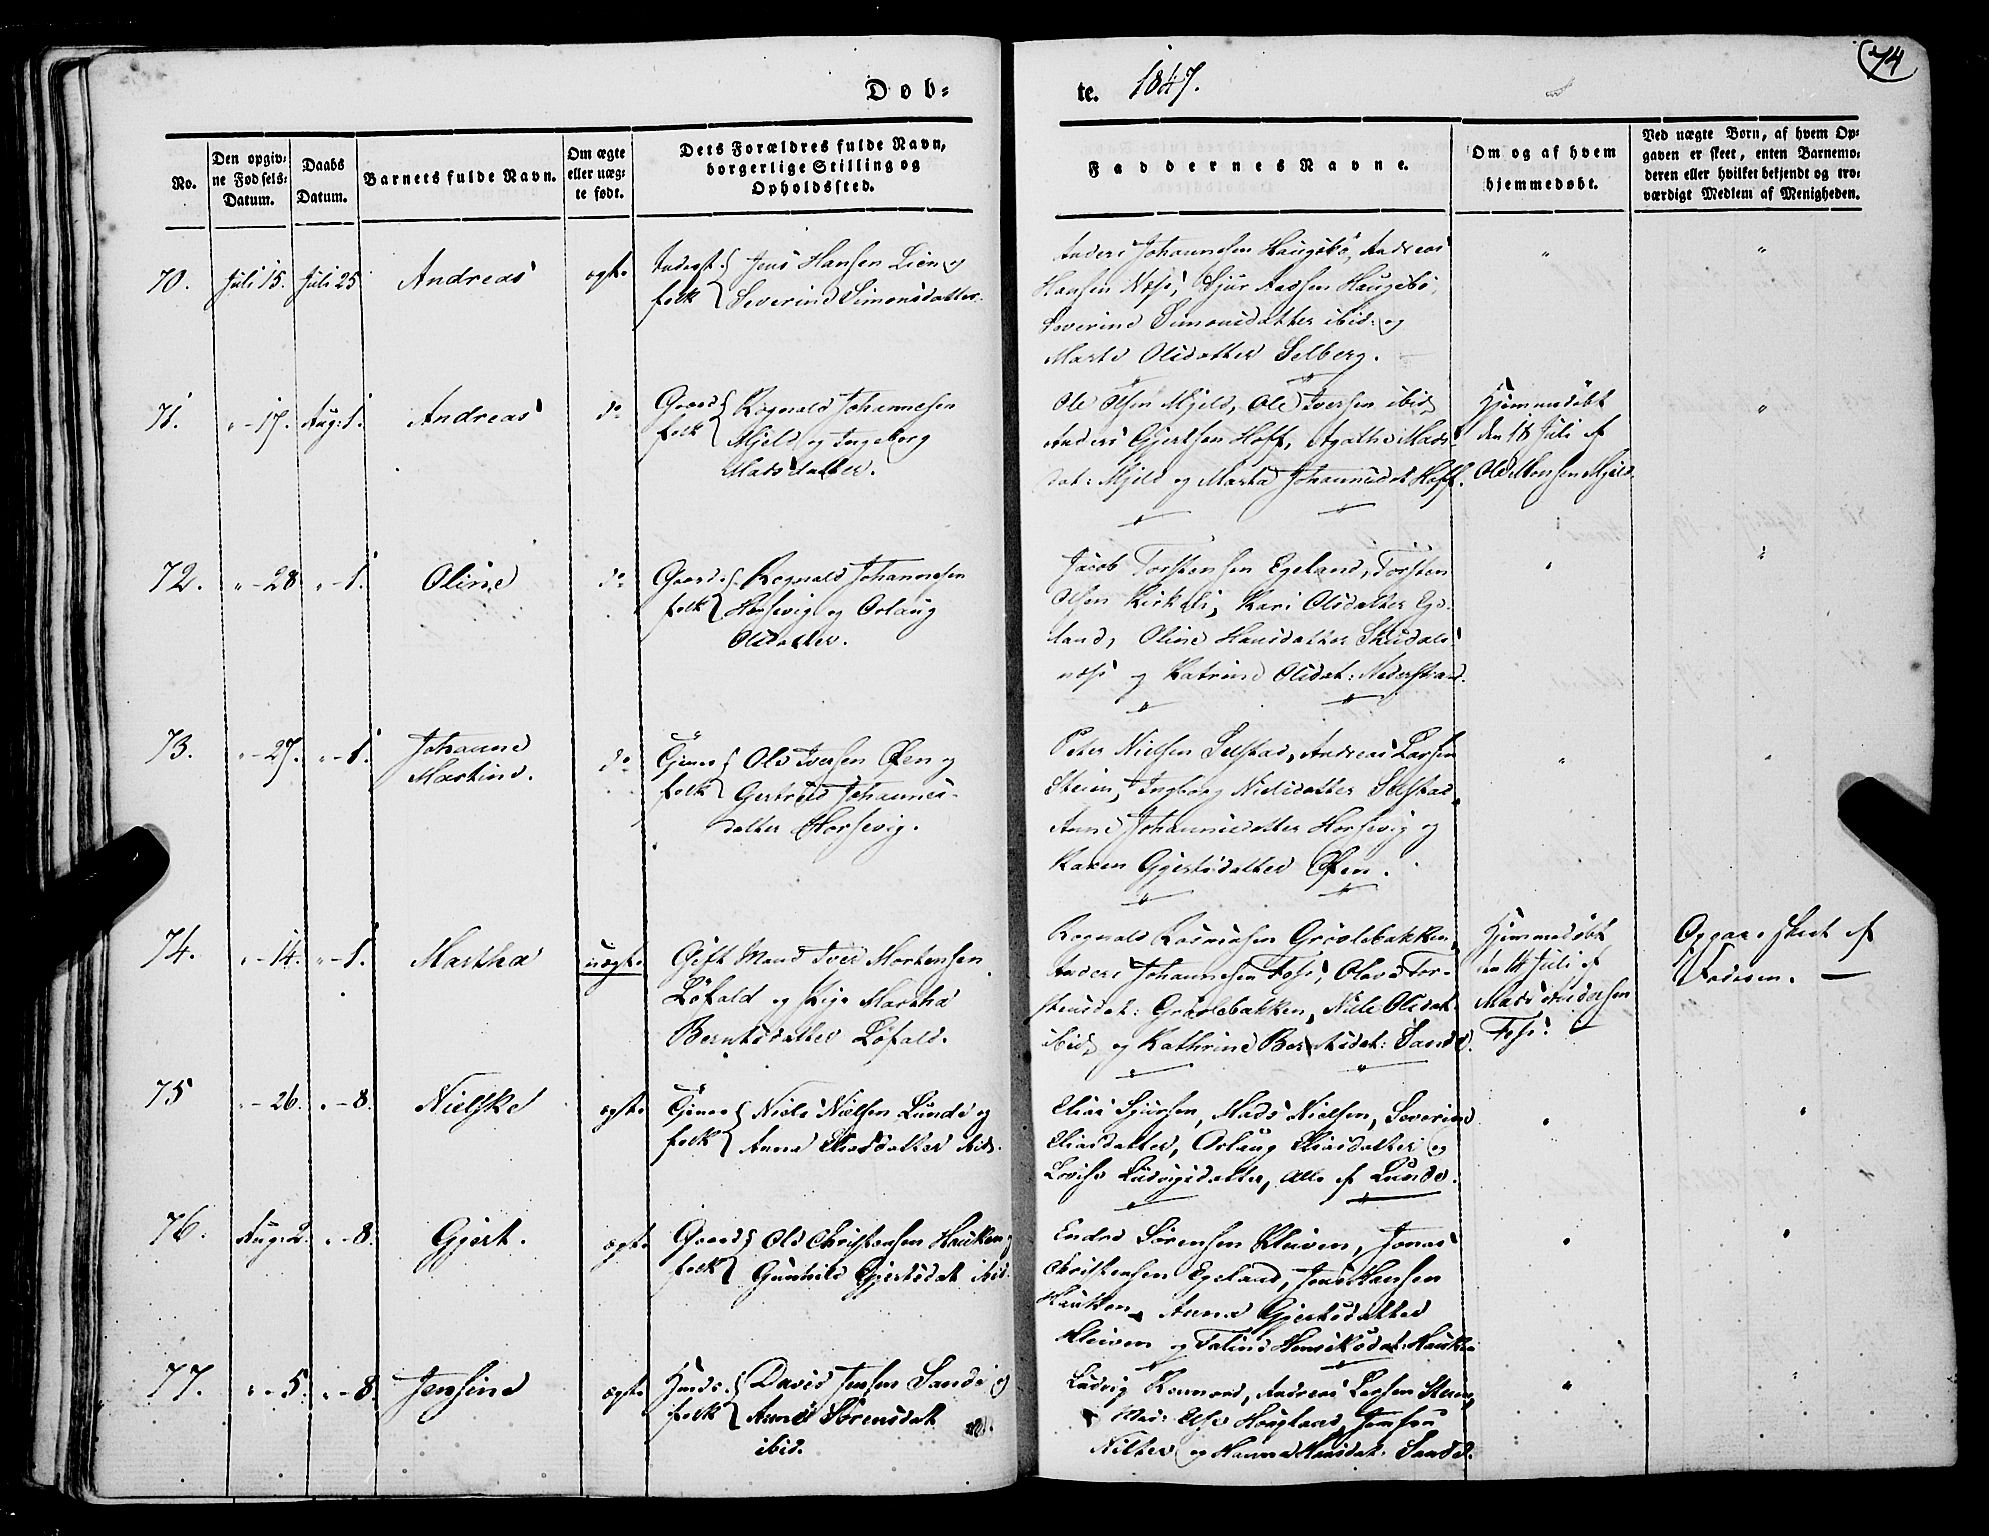 74
Døb-
te. 1847.
No.
Den opgivne Fødsels-Datum.
Daabs Datum.
Barnets fulde Navn.
Om ægte eller uægte født.
Dets Forældres fulde Navn, borgerlige Stilling og Opholdssted.
Faddernes Navne.
Om og af hvem hjemmedøbt.
Ved uægte Børn, af hvem Opgaven er skeet, enten Barnemoderen eller hvilket bekjendt og troværdigt Medlem af Menigheden.
70. Juli 15. Juli 25 Andreas ægte
Jens Hansen Lien og
folk Severine Simonsdatter.
Anders Johannesen Haugsbø, Andreas
Hansen Næss, Sjur Haugsbø,
Severine Simonsdatter ibid: og
Marte Olsdatter Selberg.
71. " - 17. Aug: 1. Andreas do
Gaard- Rognald Johannesen
folk Mjeld og Ingeborg
Madsdatter.
Ole Olsen Mjeld, Ole Iversen ibid,
Anders Gjertsen Hoff, Agathe Mads-
dat: Mjeld og Martha Johannesdat Hoff.
Hjemmedøbt
den 18 Juli af
Ole Monsen Mjeld.
72. " - 28 " - 1. Oline do
Gaard- Rognald Johannesen
folk Horsevig og Orlaug
Olsdatter.
Jacob Torstensen Egeland, Torsten
Olsen Kirkeli, Kari Olsdatter Ege-
land, Oline Hansdatter Skudals-
næss og Katrine Olsdat: Nederstrand.
73. " - 27. " - 1. Johanne do
Martine.
Tjener- Ole Iversen Øen og
folk Gertrud Johannes-
datter Horsevig.
Peter Nielsen Selstad, Andreas Larsen
Steien, Ingborg Nielsdatter Selstad,
Anne Johannesdatter Horsevig og
Karen Gjertsdatter Øen.
74. " - 14. " - 1. Martha uægte
Gift Mand Iver Mortensen
Løfald og Pige Martha
Berntsdatter Løfald.
Rognald Rasmusen Gravlebakken,
Anders Johannesen Foss, Olave Tor-
stensdat: Gravlebakken, Nille Olsdat:
ibid, og Kathrine Berntsdat: Sande.
Hjemmedøbt
den 14 Juli af
Mads Andersen
Foss.
Opgave skeet af
Faderen. —
75 " - 26. " - 8. Nielske ægte
Tjener- Niels Nielsen Lunde og
folk Anna Eliasdatter ibid.
Elias Sjursen, Mads Nielsen, Severine
Eliasdatter, Orlaug Eliasdatter og
Lovise Ludvigsdatter, alle af Lunde.
76. Aug: 2. " - 8. Gjert. ægte
Gaard- Ole Christensen Hauken og
folk Gunhild Gjertsdat ibid.
Endre Sørensen Kleiven, Jonas
Christensen Egeland, Jens Hansen
Hauken, Anna Gjertsdatter
Kleiven og Taline Henriksdat: Hauken
77. " - 5. " - 8. Jensine ægte
Huus- David Jensen Sande og
folk Anne Sørensdat
ibid.
Ludvig Andreas Larsen Steien,
Mad: Else Hougland, Jomfru
og Hanna Hansdat: Sande.